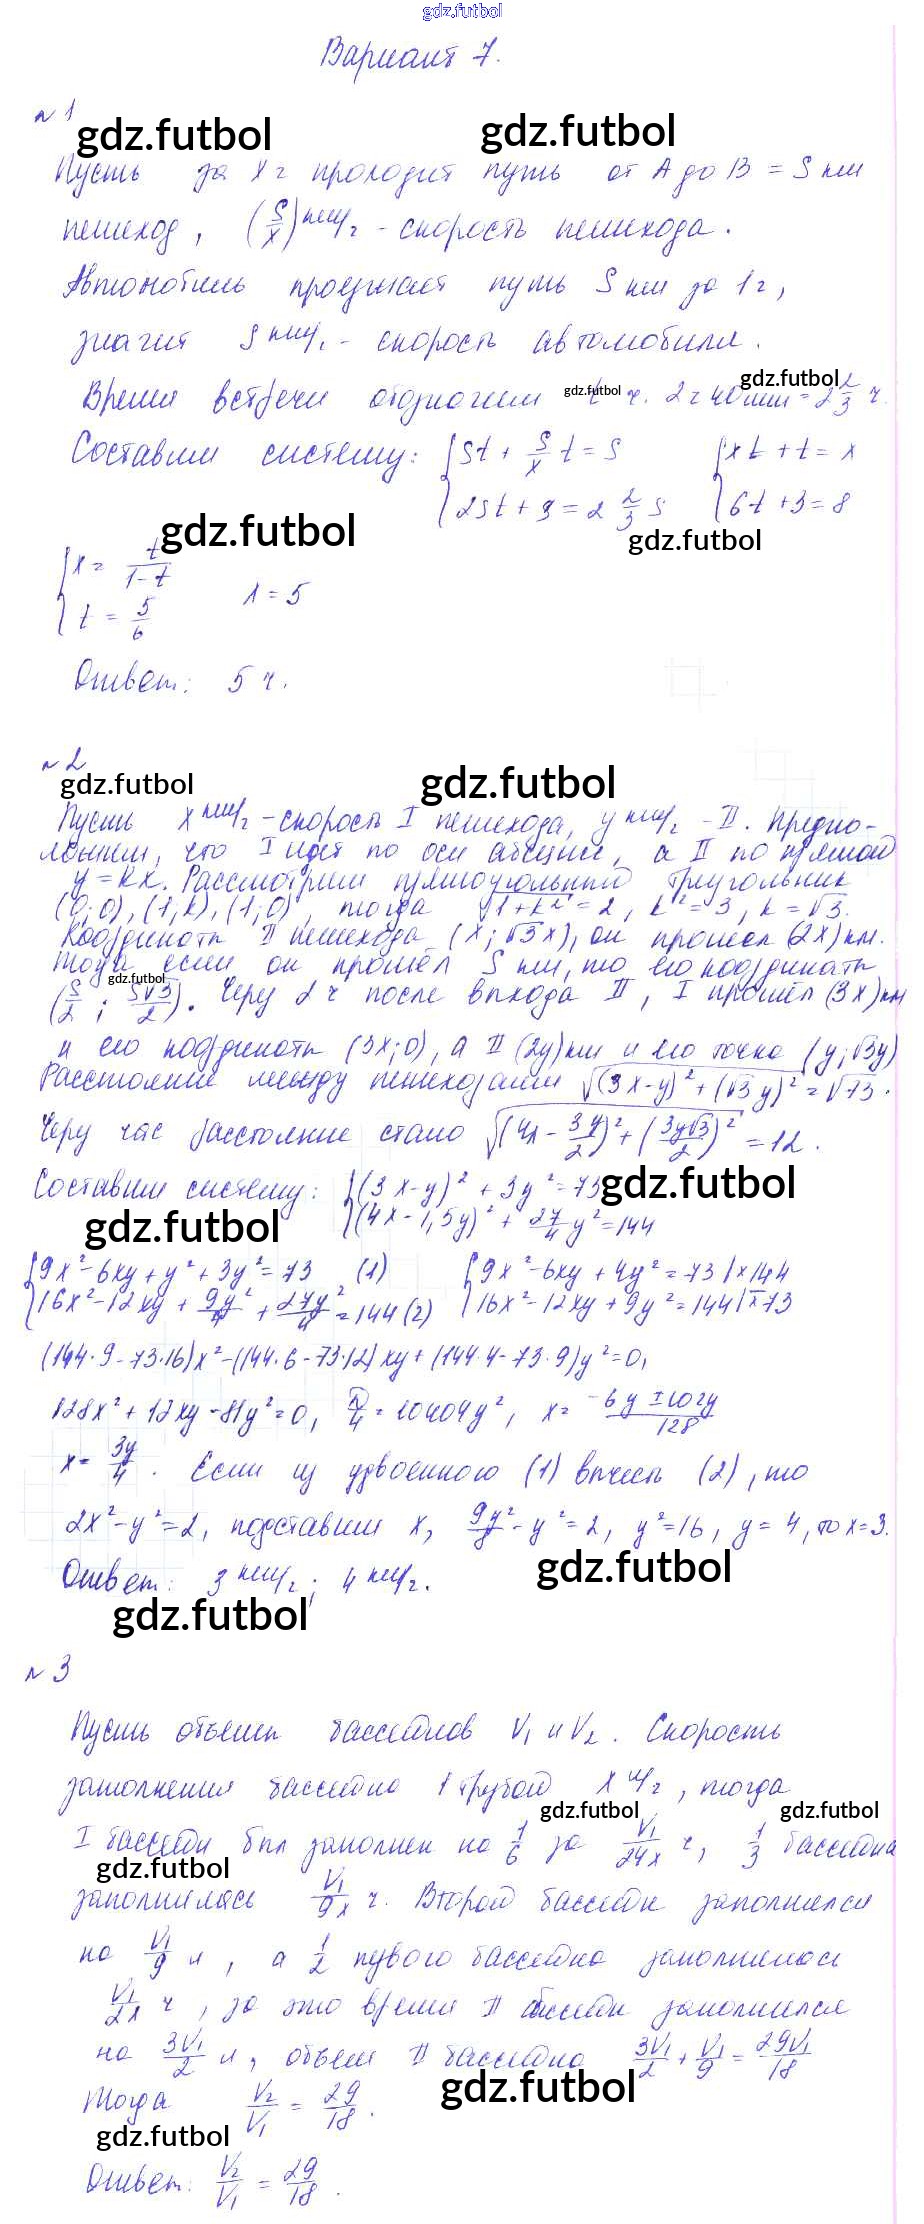 gdz.futbol
Вариант 7.
№1
gdz.futbol gdz.futbol
Пусть за x ч проходит путь от A до B = S км
пешеход, (S/x) км/ч - скорость пешехода.
Автомобиль проезжает путь S км за 1 ч,
значит S км/ч - скорость автомобиля.
gdz.futbol
Время встречи обозначим t ч. 2 ч 40 мин = 2 2/3 ч.
gdz.futbol
Составим систему: { St + S/x t = S { xt + t = x
{ 2St + 3 = 2 2/3 S { 6t + 3 = 8
gdz.futbol gdz.futbol
{ x = t/(1-t)
{ t = 5/6 x = 5
Ответ: 5 ч.
№2
gdz.futbol gdz.futbol
Пусть x км/ч - скорость I пешехода, y км/ч - II. Предпо-
ложим, что I идет по оси абсцисс, а II по прямой
y = kx. Рассмотрим прямоугольный треугольник
(0;0), (1;k), (1;0), тогда √(1+k²) = 2, k² = 3, k = √3.
Координаты II пешехода (x; √3x), он прошел (2x) км.
Тогда если он прошёл S км, то его координаты
gdz.futbol
(S/2; S√3/2). Через 2 ч после выхода II, I прошёл (3x) км
и его координаты (3x; 0), а II (2y) км и его точка (y; √3y)
Расстояние между пешеходами √((3x-y)² + (√3y)²) = √73.
Через час расстояние стало √((4x - 3y/2)² + (3y√3/2)²) = 12.
Составим систему: { (3x-y)² + 3y² = 73
gdz.futbol gdz.futbol
{ (4x-1,5y)² + 27/4 y² = 144
{ 9x² - 6xy + y² + 3y² = 73 (1) { 9x² - 6xy + 4y² = 73 | × 144
{ 16x² - 12xy + 9y²/4 + 27y²/4 = 144 (2) { 16x² - 12xy + 9y² = 144 | × 73
(144·9 - 73·16)x² - (144·6 - 73·12)xy + (144·4 - 73·9)y² = 0,
128x² + 12xy - 81y² = 0, D/4 = 10404y², x = (-6y ± 102y)/128
x = 3y/4. Если из удвоенного (1) вычесть (2), то
2x² - y² = 2, подставим x, 9y²/8 - y² = 2, y² = 16, y = 4, то x = 3.
gdz.futbol
Ответ: 3 км/ч; 4 км/ч.
gdz.futbol
№3
Пусть объемы бассейнов V₁ и V₂. Скорость
заполнения бассейна 1 трубой x л/ч, тогда
gdz.futbol gdz.futbol
I бассейн был заполнен на 1/6 за V₁/24x ч, 1/3 бассейна
gdz.futbol
заполнялась V₁/9x ч. Второй бассейн заполнился
на V₁/9 л, а 1/2 первого бассейна заполнилась
V₁/2x ч, за это время II бассейн заполнился
на 3V₁/2 л, объем II бассейна 3V₁/2 + V₁/9 = 29V₁/18
gdz.futbol
Тогда V₂/V₁ = 29/18.
gdz.futbol
Ответ: V₂/V₁ = 29/18.